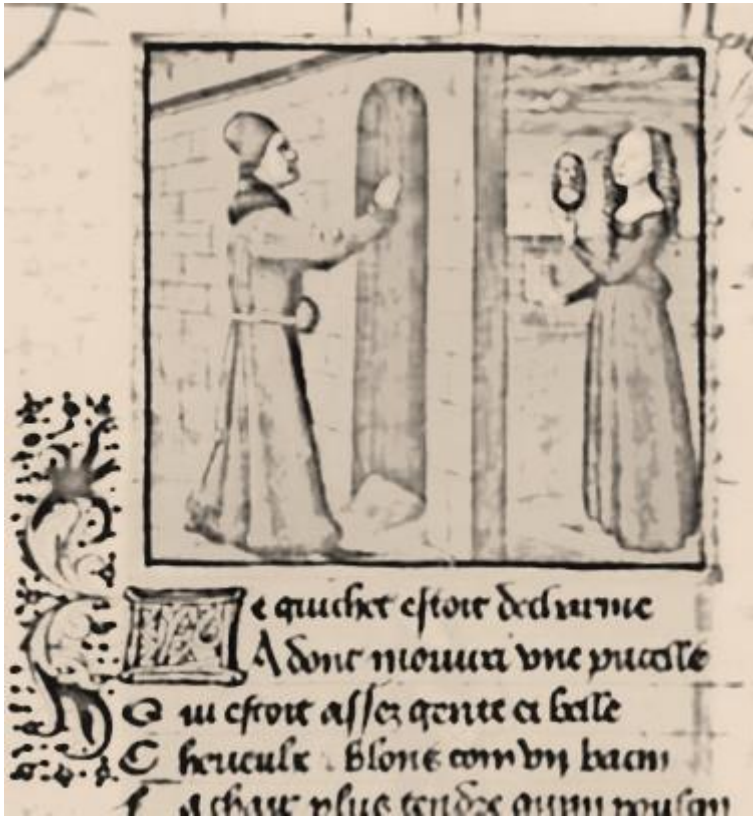 Le guichet estoit de charme
A donc mouuri vne pucelle
Q ui estoit assez gente et belle
C heueulx blons com vn bacin
L a char plus tendre quun